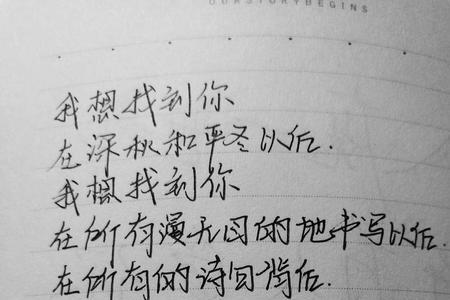 OUR STORY BEGINS
我想找到你
在深秋和严冬以后.
我想找到你
在所有漫无目的地书写以后.
在所有的诗句背后.